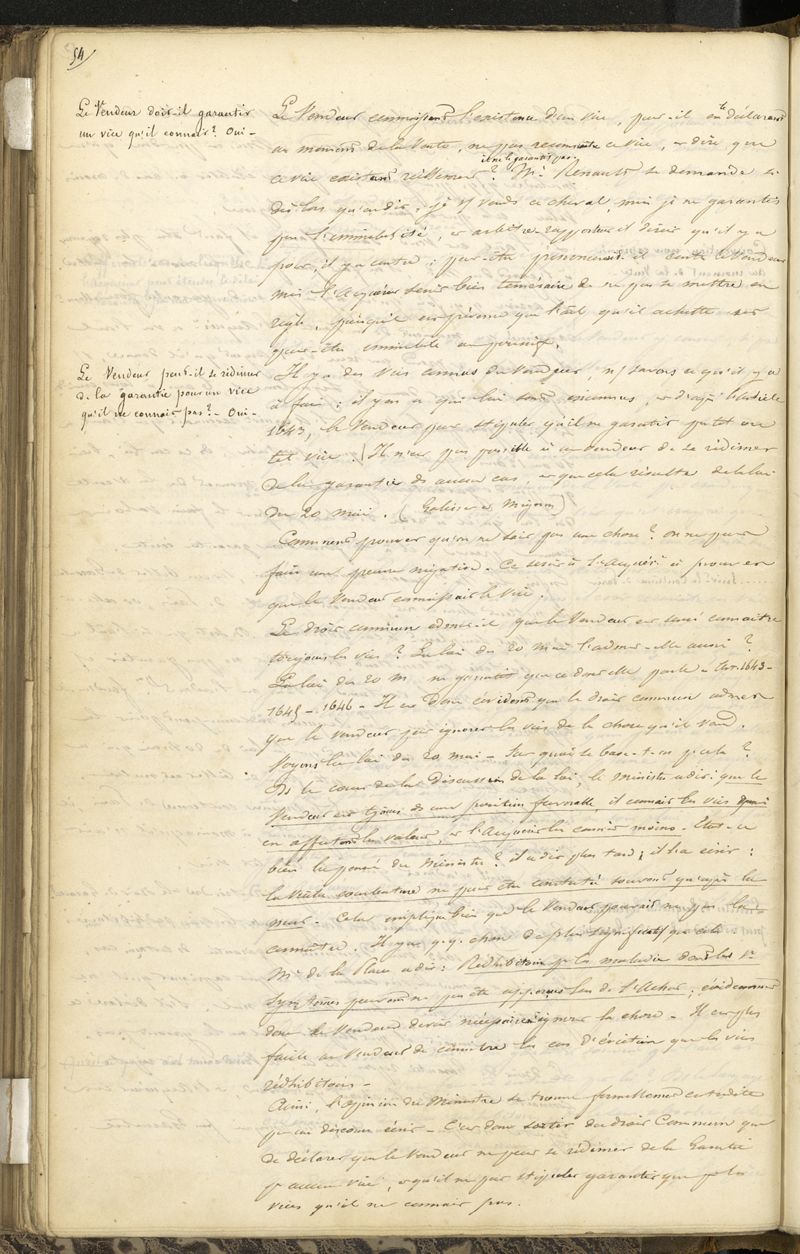 54/
Le Vendeur doit-il garantir
un vice qu'il connait? Oui -
Le Vendeur connaissant l'existence d'un vice, peut-il en déclarant
au moment de la Vente, ne pas reconnaître ce vice, et dire que
il ne le garantit pas
ce vice existant réellement? Mr. Renault se demande si
dès lors qu'on dit: je vends ce cheval, mais je ne garantis
pas l'immobilité, et arbitre-rapporteur il dirait qu'il y a
pour, il y a contre: peut-être prononcerait-il contre le Vendeur
mais l'Acquéreur serait bien téméraire de ne pas se mettre en
règle, puisqu'il est prévenu que qu'il achette est
peut-être immobile ou poussif.
Le Vendeur peut-il se rédimer
de la garantie pour un vice
qu'il ne connait pas? - Oui -
Il y a des vices connus du Vendeur, n/ savons ce qu'il y a
à faire: il y en a qui lui sont inconnus, et d'après l'article
1643, le Vendeur peut stipuler qu'il ne garantit pas tel ou
tel vice. (Il n'est pas possible à un vendeur de se rédimer
de la garantie ds aucun cas, et que cela résulte de la loi
du 20 mai. (Galisset et Mignon)
Comment prouver qu'on ne sait pas une chose? on ne peut
faire une preuve négative. Ce serait à l'Acquér. à prouver
que le Vendeur connaissait le vice.
Le droit commun admet-il que le Vendeur est censé connaitre
toujours les vices? La loi du 20 mai l'admet-elle aussi?
La loi du 20 m. ne garantit que ce dont elle parle - Art. 1643-
1645 - 1646 - Il est donc évident que le droit commun admet
que le Vendeur peut ignorer les vices de la chose qu'il vend.
Voyons la loi du 20 mai - Sur quoi se base-t-on p. cela?
Ds le cours de la Discussion de la loi, le ministre a dit: que le
Vendeur est tjours ds une position favorable, il connait les vices qui
en affectent la valeur, et l'Acquéreur les connait moins - Etait-ce
bien la pensée du Ministre? il a dit plus tard, il l'a écrit:
ne peut être constaté souvent qu'après la
mort - Cela implique bien que le Vendeur pouvait ne pas la
connaître. Il y a q.q. chose de plus significatif que cela
Mr de la Place a dit: Rédhibitoire p. les maladies dont les
symptômes peuvent ne pas être apperçus lors de l'Achat; évidemment
donc le Vendeur devait nécessairemt ignorer la chose - Il est plus
facile au Vendeur de connaître les cas d'éviction que les vices
rédhibitoires -
Ainsi, l'opinion du Ministre se trouve formellement contredite
p. un discours écrit - C'est donc sortir du droit Commun que
de déclarer que le Vendeur ne peut se rédimer de la Garantie
p. aucun vice, et qu'il ne peut stipuler garantir que p. les
vices qu'il ne connait pas.